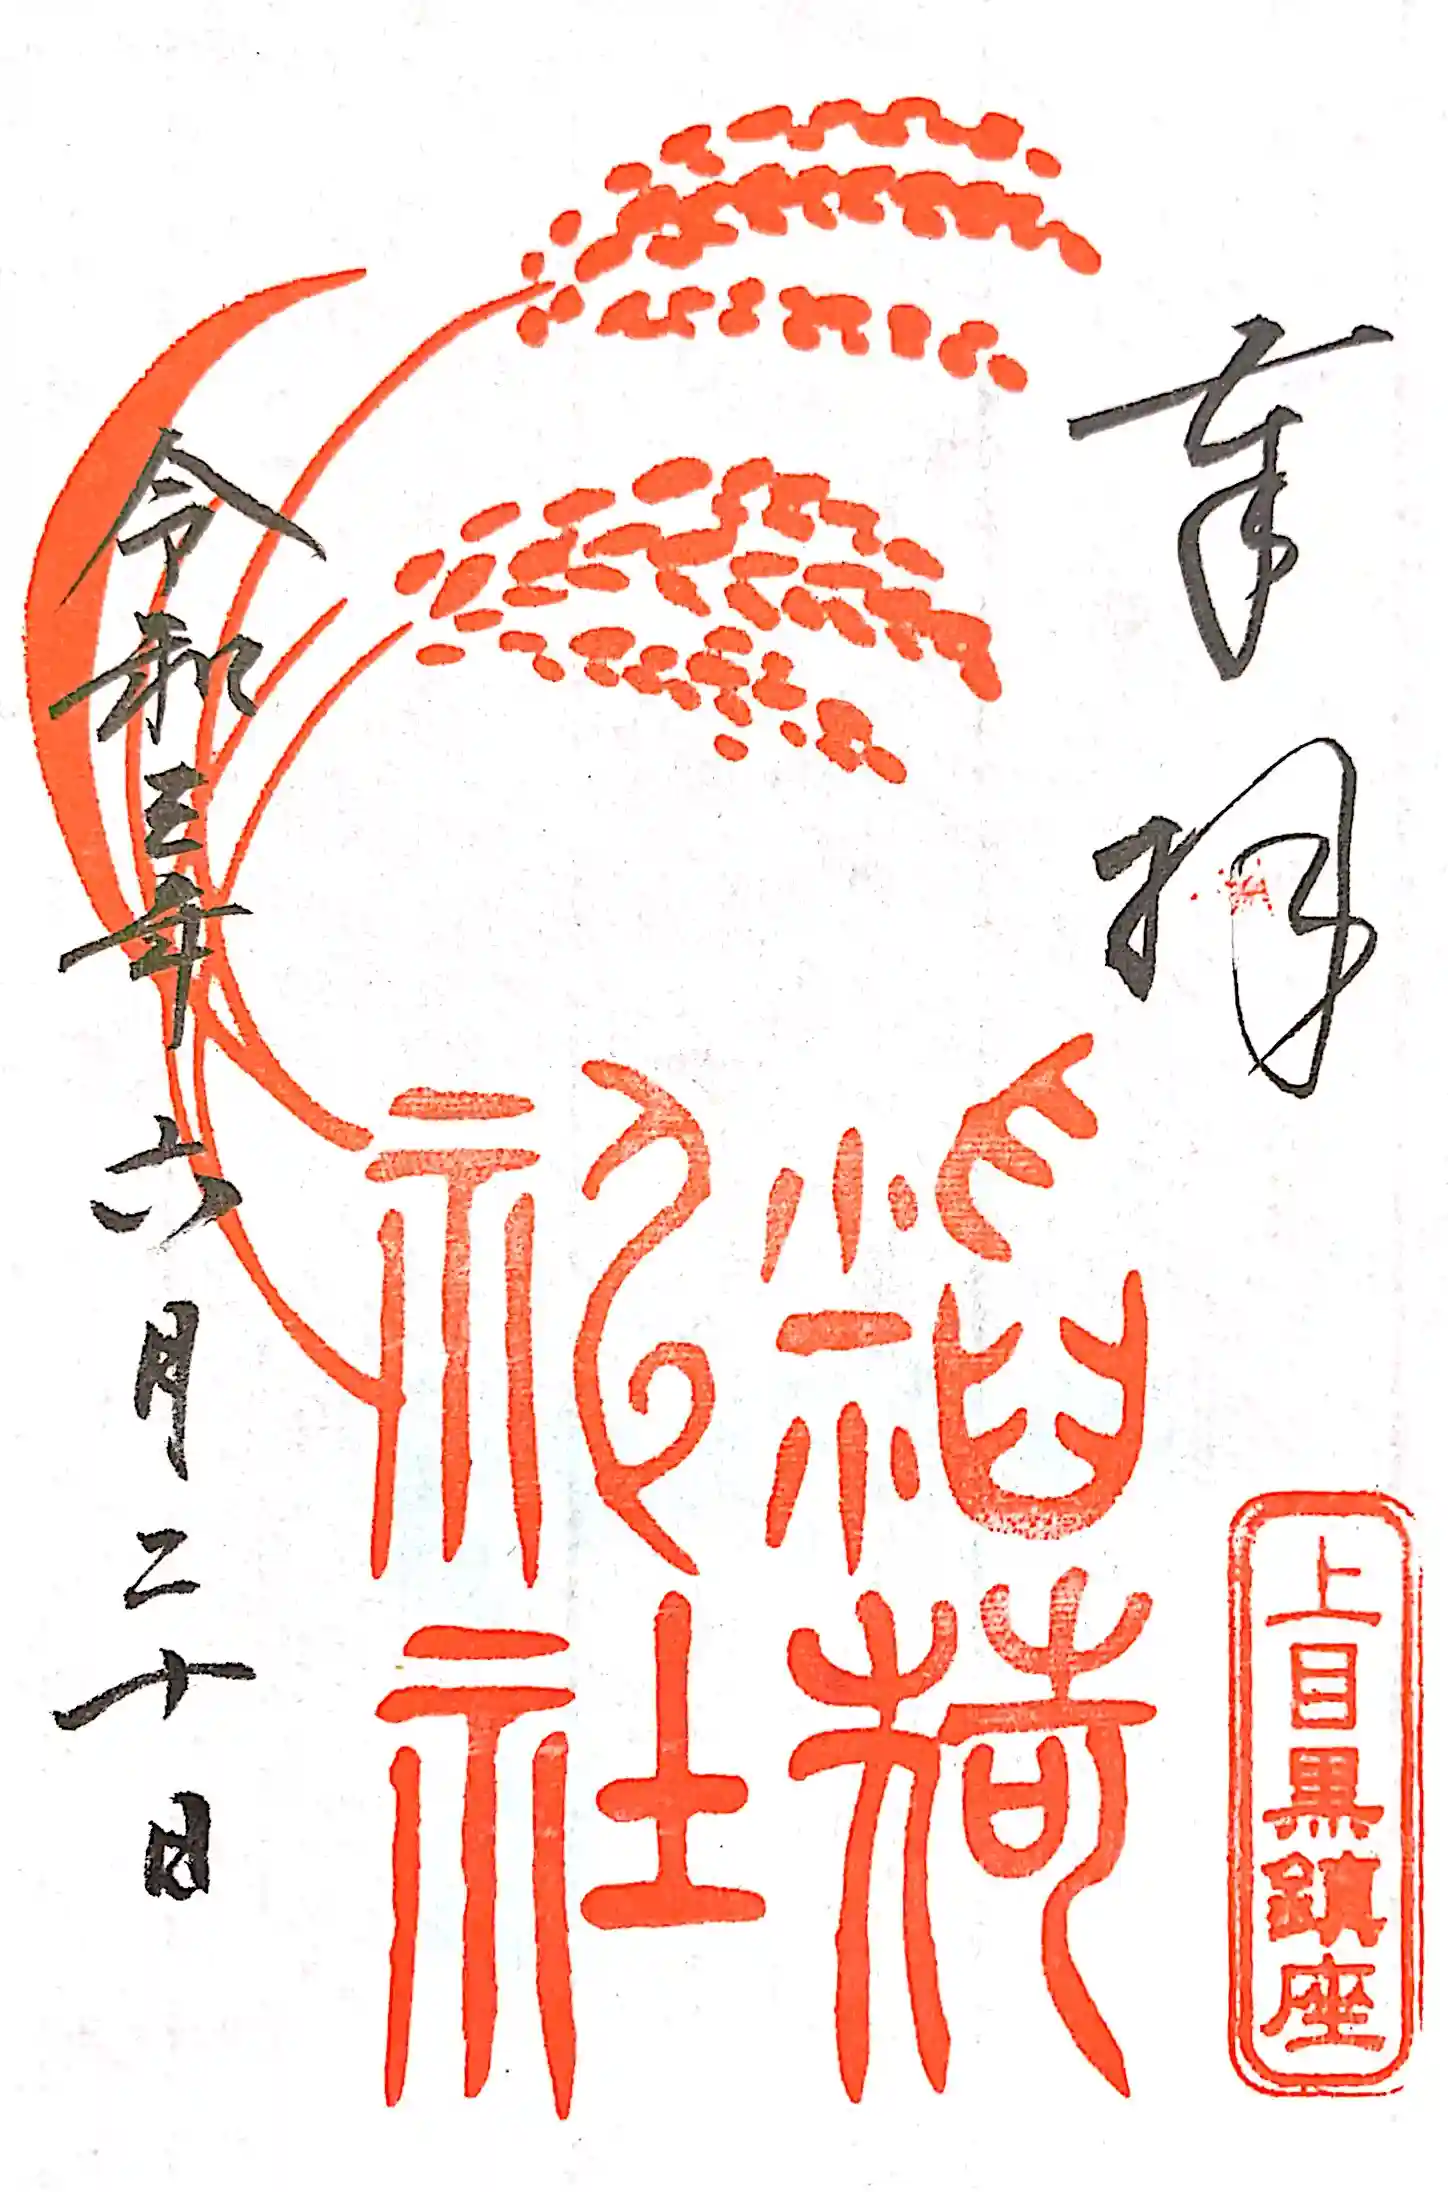 奉拝
上目黒鎮座
稲荷
神社
令和三年六月二十日